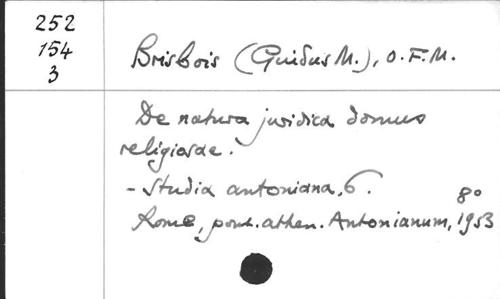 252
154
3
Brisbois (Guidus M.), O.F.M.
De natura juridica domus
religiosae.
- Studia antoniana, 6.
8°
Rome, pont. athen. Antonianum, 1953